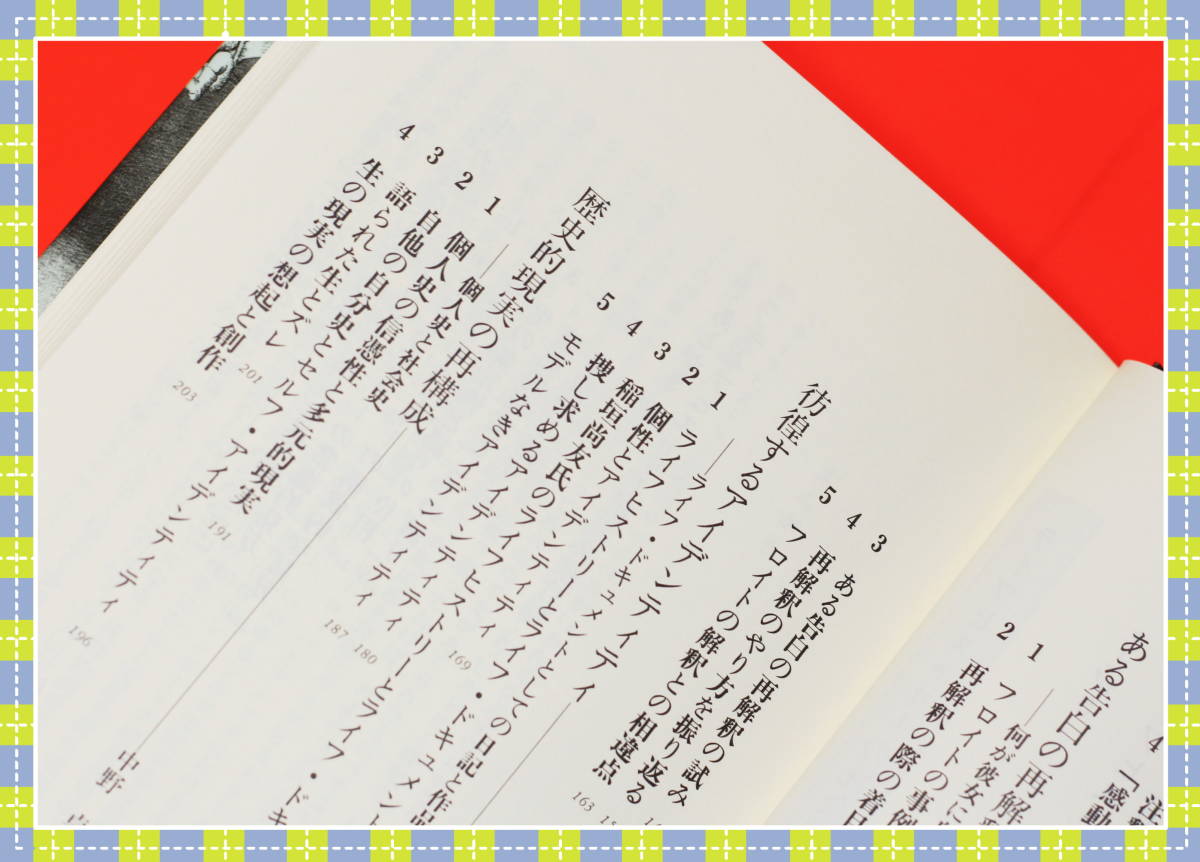 4 注
「感動
ある告白の再解
――何が彼女に
1 フロイトの事例
2 再解釈の際の着目
3 ある告白の再解釈の試み
4 再解釈のやり方を振り返る
5 フロイトの解釈との相違点 163
彷徨するアイデンティティ
――ライフ・ドキュメントとしての日記と作品
1 ライフヒストリーとライフ・ドキュメント
2 個性とアイデンティティ 169
3 稲垣尚友氏のライフヒストリーとライフ・ドキ
4 捜し求めるアイデンティティ 180
5 モデルなきアイデンティティ 187
歴史的現実の再構成 中野
――個人史と社会史
1 個人史の信憑性と多元的現実 191
2 自他の自分史とセルフ・アイデンティティ 196
3 語られた生とズレ 201
4 生の現実の想起と創作 203